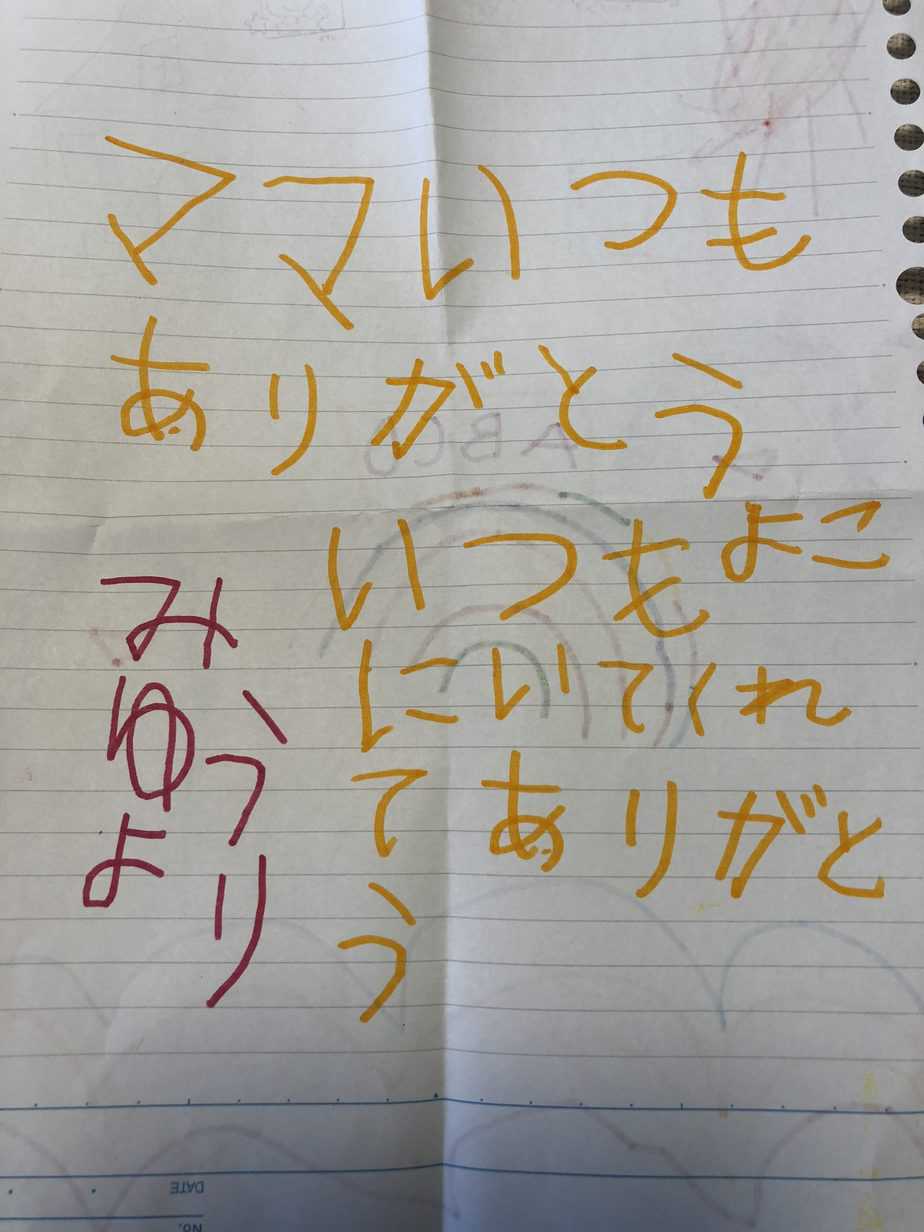 ママいつも
ありがとう
いつもよこ
にいてくれ
てありがと
う
みゆよ
うり
ABC
DATE
NO.